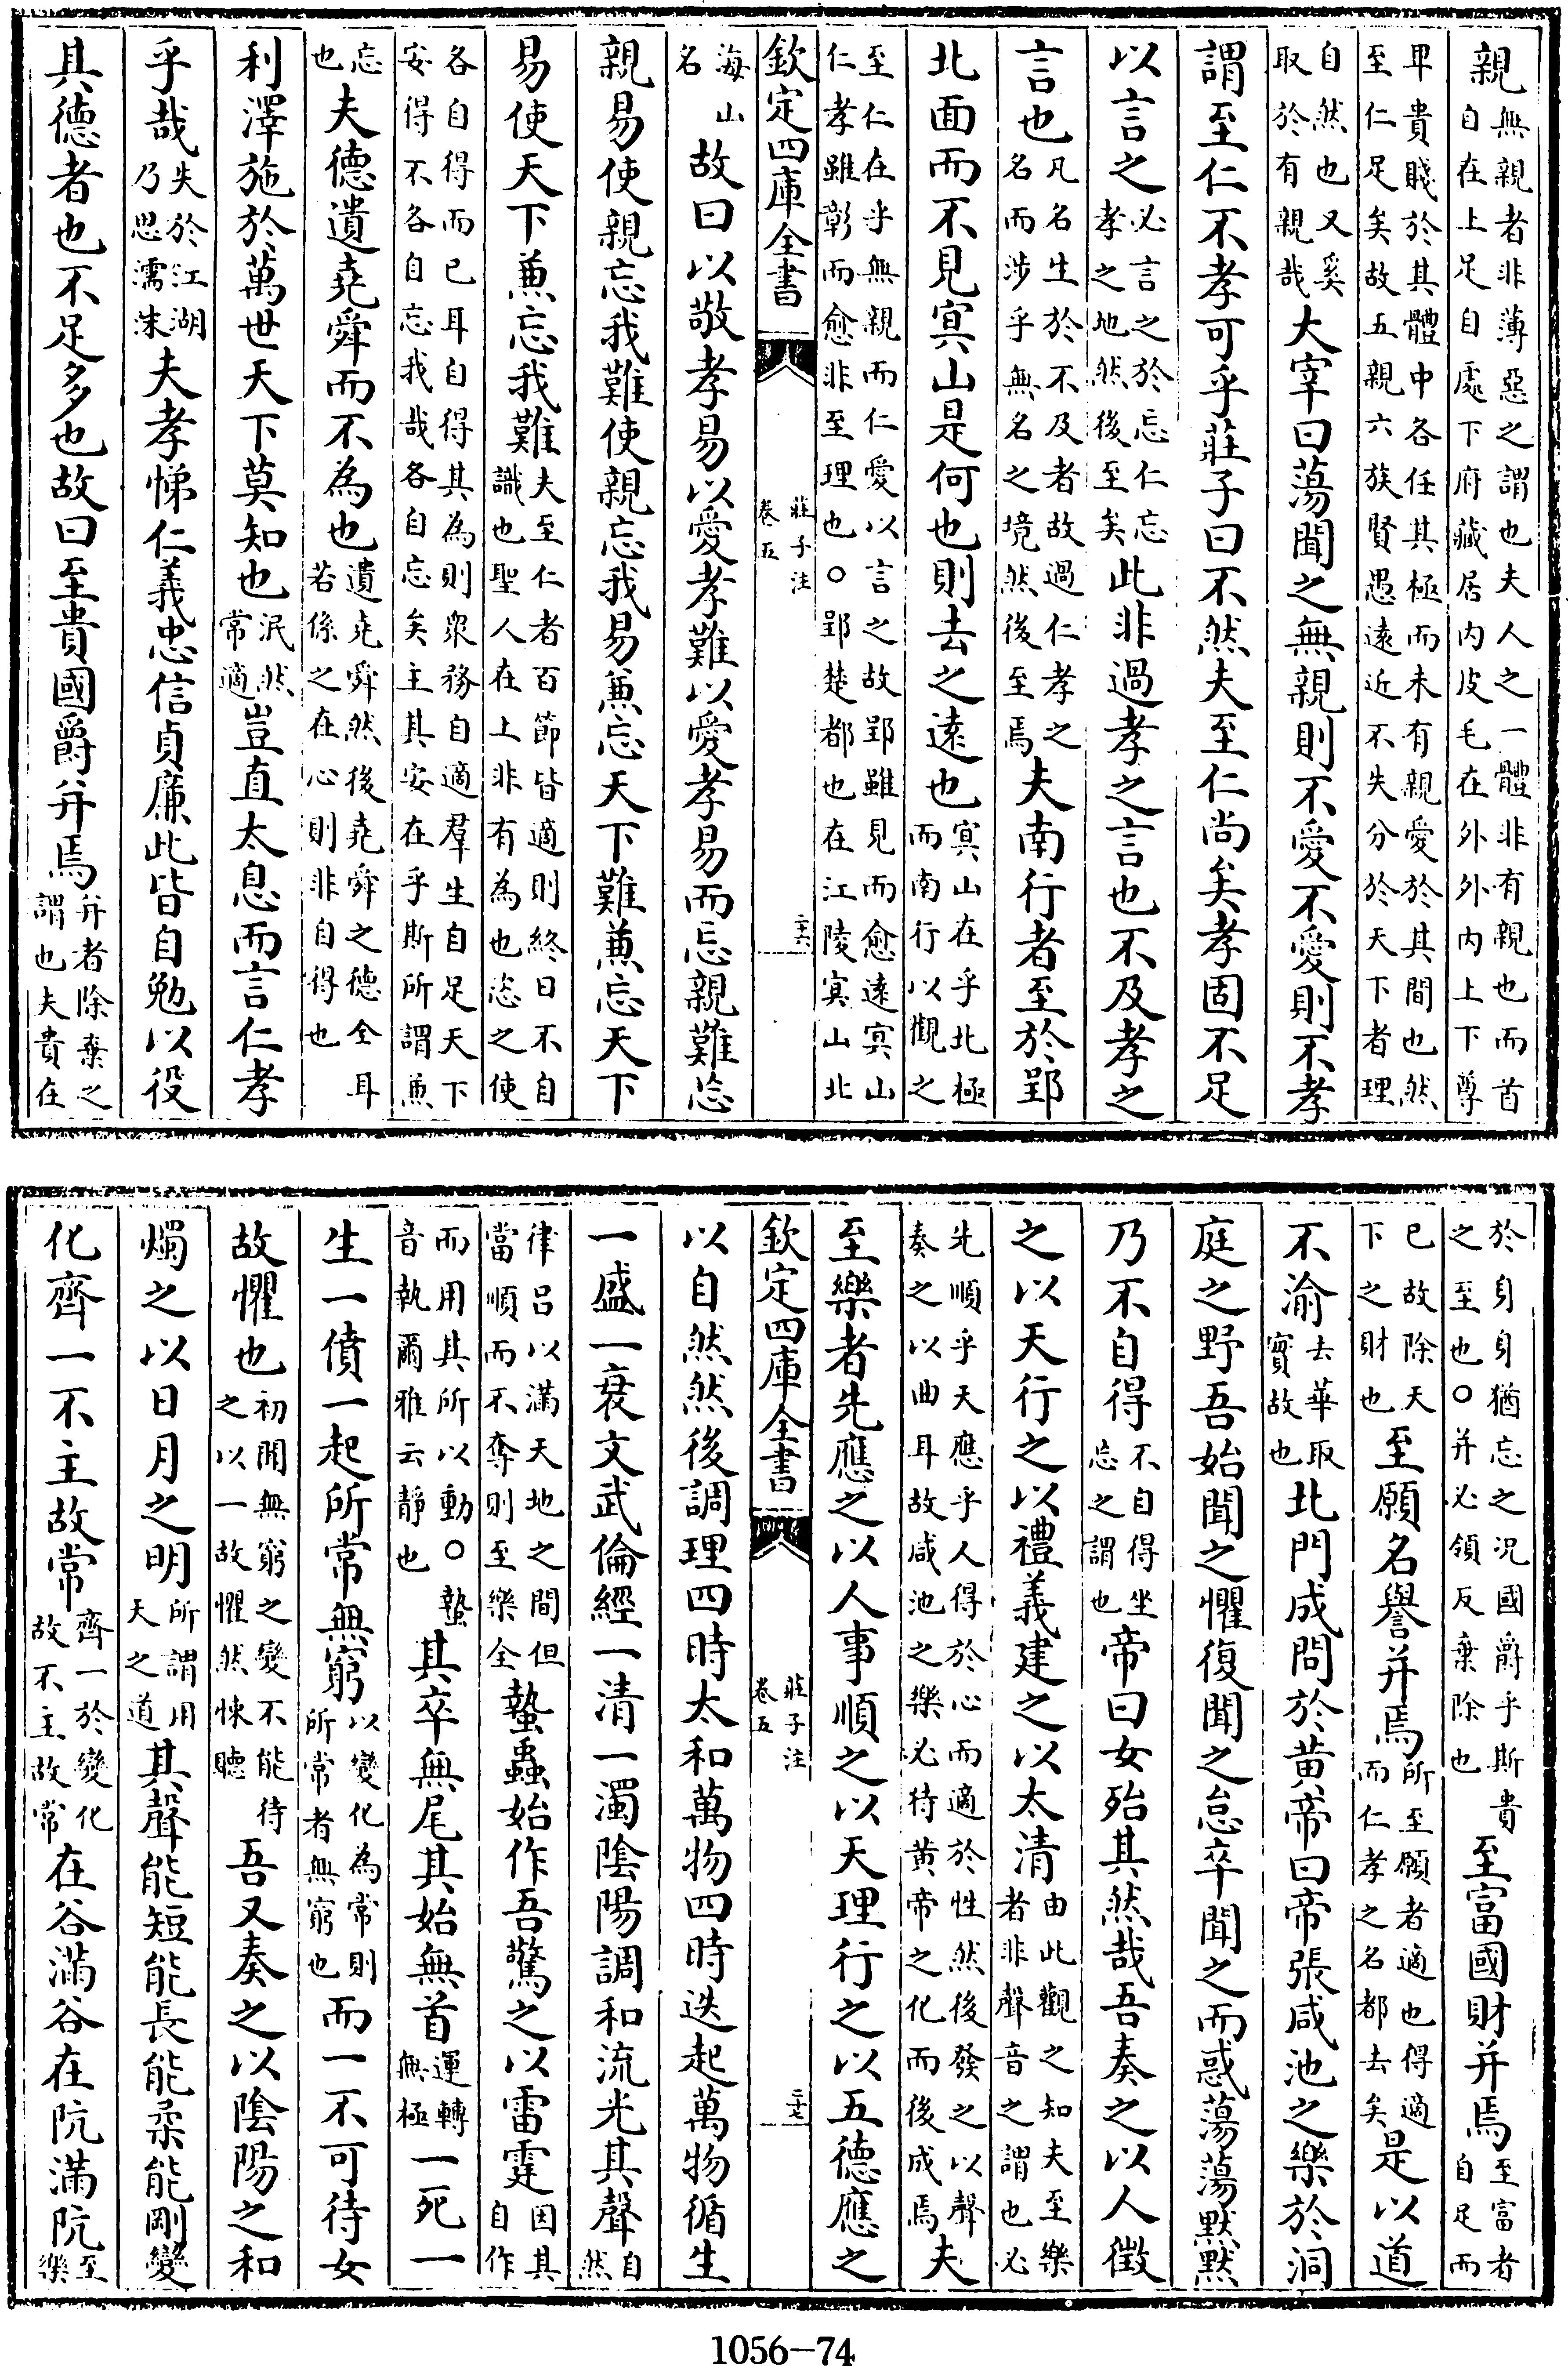 親無親者非薄惡之謂也夫人之一體非有親也而首自在上足自處下府藏居内皮毛在外外内上下尊
卑貴賤於其體中各任其極而未有親愛於其間也然至仁足矣故五親六族賢愚遠近不失分於天下者理
自然也又奚取於有親哉大宰曰蕩聞之無親則不愛不愛則不孝
謂至仁不孝可乎莊子曰不然夫至仁尚矣孝固不足
以言之必言之於忘仁忘孝之地然後至矣此非過孝之言也不及孝之
言也凡名生於不及者故過仁孝之名而涉乎無名之境然後至焉夫南行者至於郢
北面而不見冥山是何也則去之遠也冥山在乎北極而南行以觀之
至仁在乎無親而仁愛以言之故郢雖見而愈遠冥山仁孝雖彰而愈非至理也○郢楚都也在江陵冥山北
欽定四庫全書
莊子注
卷五
二十六
海山名故曰以敬孝易以愛孝難以愛孝易而忘親難忘
親易使親忘我難使親忘我易兼忘天下難兼忘天下
易使天下兼忘我難夫至仁者百節皆適則終日不自識也聖人在上非有為也恣之使
各自得而已耳自得其為則衆務自適羣生自足天下安得不各自忘我哉各自忘矣主其安在乎斯所謂兼
忘也夫德遺堯舜而不為也遺堯舜然後堯舜之德全耳若係之在心則非自得也
利澤施於萬世天下莫知也泯然常適豈直太息而言仁孝
乎哉失於江湖乃思濡沫夫孝悌仁義忠信貞廉此皆自勉以役
其德者也不足多也故曰至貴國爵并焉并者除棄之謂也夫貴在
於身身猶忘之况國爵乎斯貴之至也○并必領反棄除也至富國財并焉至富者自足而
已故除天下之財也至願名譽并焉所至願者適也得適而仁孝之名都去矣是以道
不渝去華取實故也北門成問於黄帝曰帝張咸池之樂於洞
庭之野吾始聞之懼復聞之怠卒聞之而惑蕩蕩默默
乃不自得不自得坐忘之謂也帝曰女殆其然哉吾奏之以人徵
之以天行之以禮義建之以太清由此觀之知夫至樂者非聲音之謂也必
先順乎天應乎人得於心而適於性然後發之以聲奏之以曲耳故咸池之樂必待黄帝之化而後成焉夫
至樂者先應之以人事順之以天理行之以五德應之
欽定四庫全書
莊子注
卷五
二十七
以自然然後調理四時太和萬物四時迭起萬物循生
一盛一衰文武倫經一清一濁陰陽調和流光其聲自然
律呂以滿天地之間但當順而不奪則至樂全蟄蟲始作吾驚之以雷霆因其自作
而用其所以動○蟄音執爾雅云靜也其卒無尾其始無首運轉無極一死一
生一僨一起所常無窮以變化為常則所常者無窮也而一不可待女
故懼也初聞無窮之變不能待之以一故懼然悚聽吾又奏之以陰陽之和
燭之以日月之明所謂用天之道其聲能短能長能柔能剛變
化齊一不主故常齊一於變化故不主故常在谷滿谷在阬滿阬至樂
1056-74